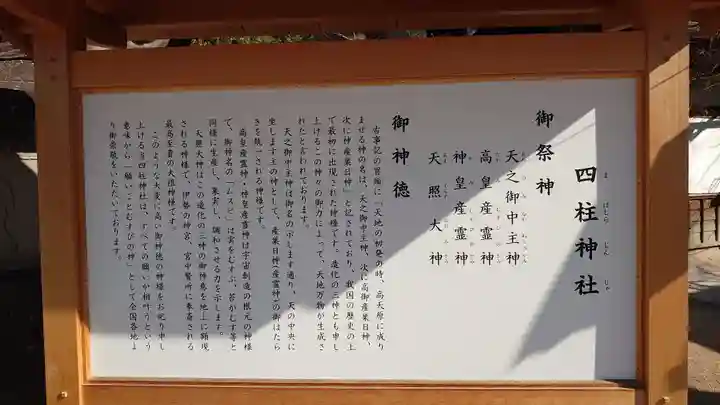 四柱神社
よはしらじんじゃ
御祭神
天之御中主神
高皇産霊神
神皇産霊神
天照大神
御神徳
古事記の冒頭に「天地の初発の時、高天原に成り
ませる神の名は、天之御中主神、次に高御産巣日神、
次に神産巣日神」と記されており、我国の歴史の上
で最初に出現された神様です。造化の三神とも申し
上げるこの神々の御力によって、天地万物が生成さ
れたと言われております。
天之御中主神は御名の示します通り、天の中央に
坐します主の神として、産巣日神（産霊神）の御はたら
きを統一される神様です。
高皇産霊神・神皇産霊神は宇宙創造の根元の神様
で、御神名の「ムスビ」は実をむすぶ、苔がむす等と
同様に生産し、集実し、調和させる力を示します。
天照大神はこの造化の三神の御神意を地上に顕現
される神様で、伊勢の神宮、宮中賢所に奉斎される
最高至貴の大祖神様です。
このような大変に高い御神徳の神様をお祀り申し
上げる当四柱神社は、すべての願いが相叶うという
意味から「願いごとむすびの神」として全国各地よ
り御崇敬をいただいております。